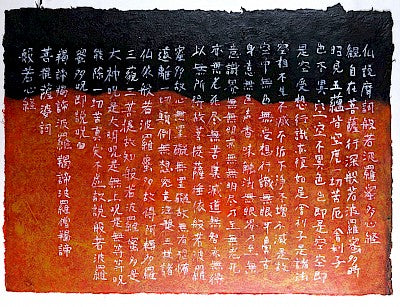 仏説摩訶般若波羅蜜多心経
観自在菩薩行深般若波羅蜜多時
照見五蘊皆空度一切苦厄舎利子
色不異空空不異色色即是空空即
是色受想行識亦復如是舎利子是諸法
空相不生不滅不垢不浄不増不減是故
空中無色無受想行識無眼耳鼻舌
身意無色声香味触法無眼界乃至無
意識界無無明亦無無明尽乃至無老死
亦無老死尽無苦集滅道無智亦無得
以無所得故菩提薩埵依般若波羅
蜜多故心無罣礙無罣礙故無有恐怖
遠離一切顛倒夢想究竟涅槃三世諸
仏依般若波羅蜜多故得阿耨多羅
三藐三菩提故知般若波羅蜜多是
大神呪是大明呪是無上呪是無等等呪
能除一切苦真実不虚故説般若波羅
蜜多呪即説呪曰
羯諦羯諦波羅羯諦波羅僧羯諦
菩提薩婆訶
般若心経